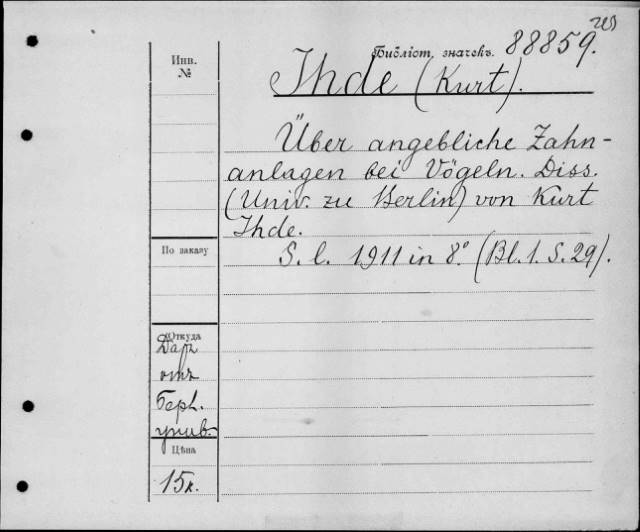 Библіот. значекъ. 88859.
Инв.
№
Ihde (Kurt).
Über angebliche Zahn-
anlagen bei Vögeln. Diss.
(Univ. zu Berlin) von Kurt
Ihde.
S. l. 1911 in 8° (Bl. 1. S. 29).
По заказу
Откуда
Даръ
отъ
Берл.
унив.
Цѣна
15к.